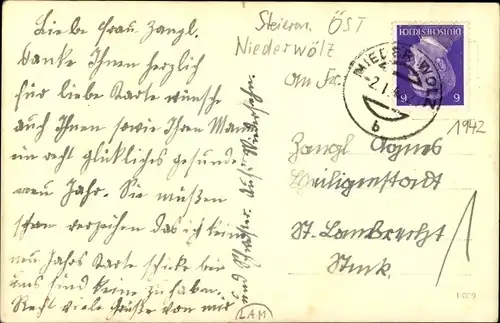 Liebe Frau Zangl.
Danke Ihnen herzlich
für liebe Karte wünsche
auch Ihnen sowie Ihren Mann
ein recht glückliches gesundes
neues Jahr. Sie müßen
schon verzeihen das ich keine
neu Jahrs Karte schicke bei
uns sind keine zu haben.
Recht viele Grüße von mir
und
Steierm. ÖST
Niederwölz
DEUTSCHES REICH
6 6
NIEDERWÖLZ
-2.1.4
b
An Fr.
1942
Zangl Agnes
Heiligenstadt
St. Lambrecht
Stmk.
LAM